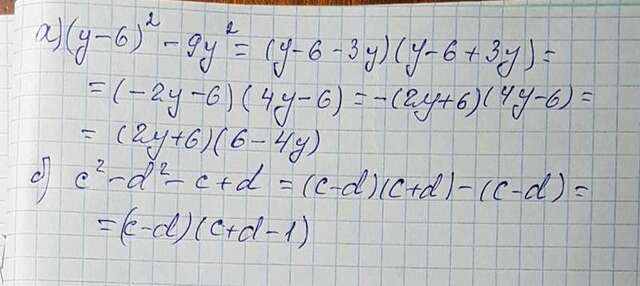 а) (y-6)² - 9y² = (y-6-3y)(y-6+3y) =
= (-2y-6)(4y-6) = -(2y+6)(4y-6) =
= (2y+6)(6-4y)
б) c² - d² - c + d = (c-d)(c+d) - (c-d) =
= (c-d)(c+d-1)